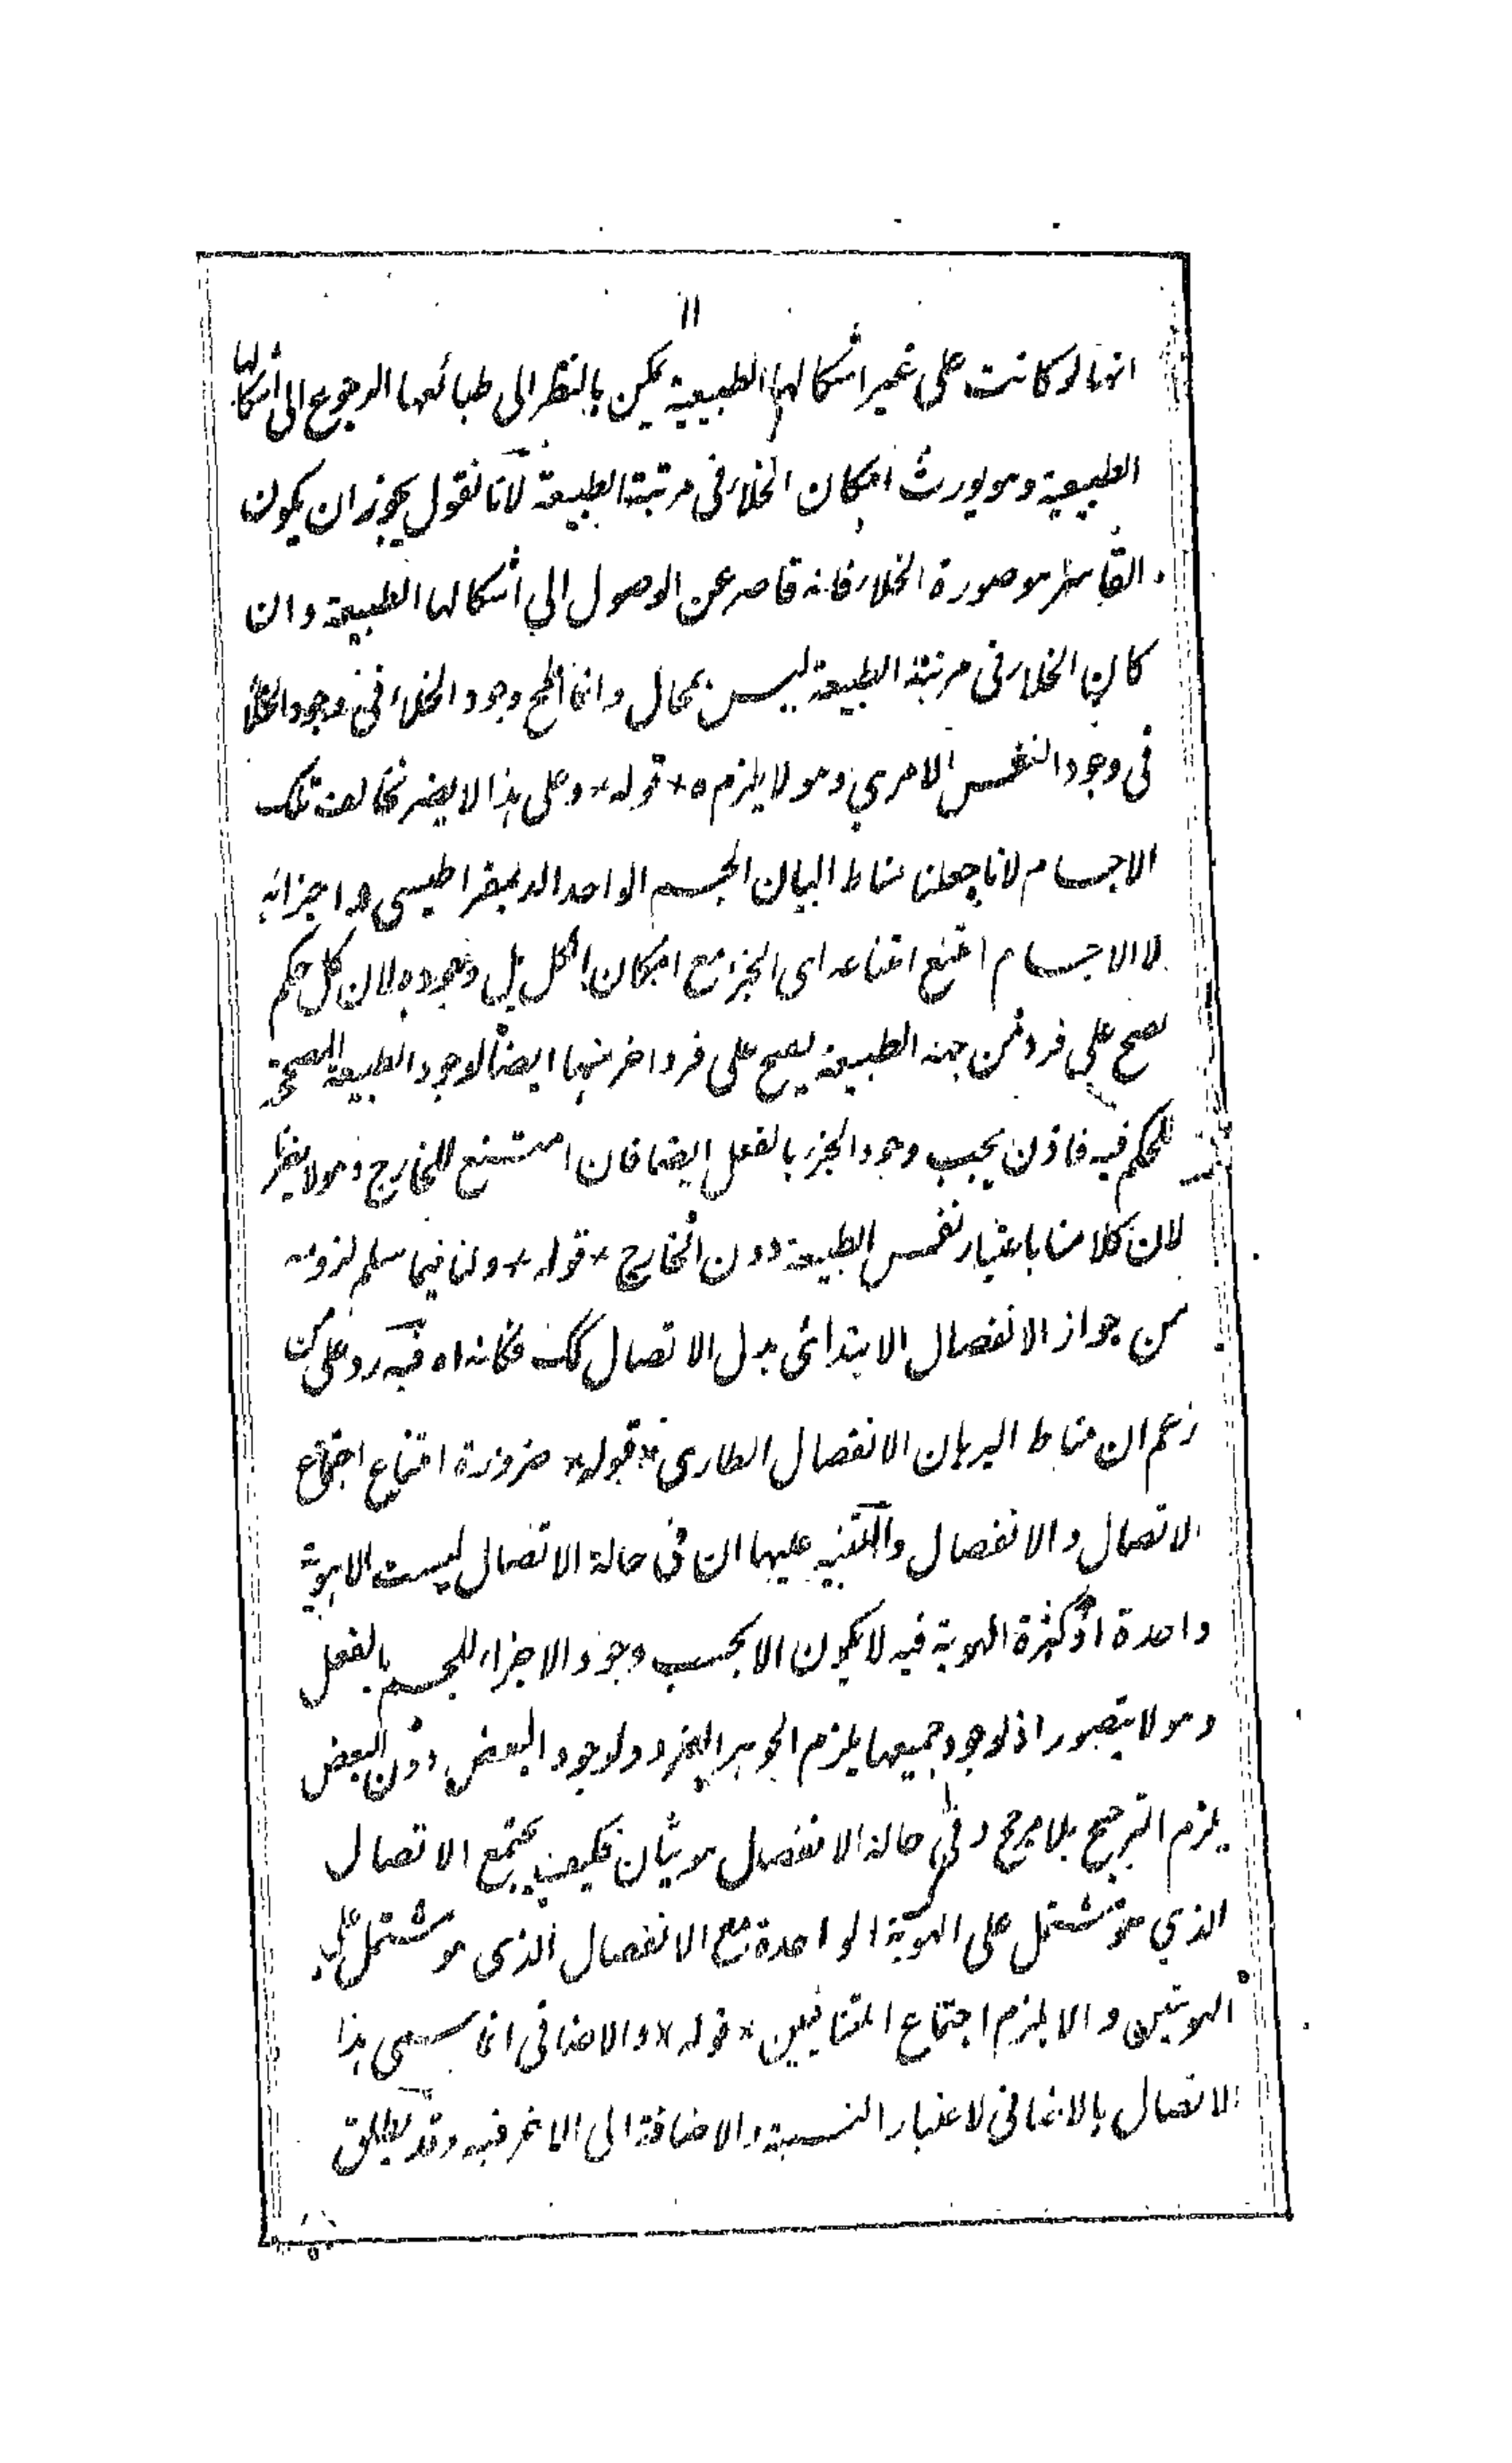 ١١
انها لو كانت على غير اشكالها الطبيعية يمكن بالنظر الى طبائعها الرجوع الى اشكالها
الطبيعية وهو يورث امكان الخلاء فى مرتبة الطبيعة لانا نقول يجوز ان يكون
القاسر هو صورة الخلاء فانه قاصر عن الوصول الي اشكالها الطبيعية وان
كان الخلاء فى مرتبة الطبيعة ليس بمحال وانما المح وجود الخلاء فى وجود الخلاء
فى وجود النفس الامري وهو لا يلزم ه * قوله * وعلى هذا لا يضر تخالف تلك
الاجسام لانا جعلنا مناط البيان الجسم الواحد الديمقراطيسى واجزائه
لا الاجسام امتنع امتناعه اى الجزء مع امكان الكل بل وجوده لان كل حكم
يصح على فرد من جهة الطبيعة يصح على فرد اخر منهما ايضا لوجود الطبيعة المصححة
للحكم فيه فاذن يجب وجود الجزء بالفعل ايضا فان امتنع للخارج وهو لا يضر
لان كلامنا باعتبار نفس الطبيعة دون الخارج * قوله * ولنا فيما سلم لزومه
من جواز الانفصال الابتدائى بدل الاتصال كك فكانه اه فيه رد على من
زعم ان مناط البرهان الانفصال الطارى * قوله * ضرورة امتناع اجتماع
الاتصال والانفصال والتنبيه عليها ان فى حالة الاتصال ليست الا هوية
واحدة اذ كثرة الهوية فيه لا يكون الا بحسب وجود الاجزاء للجسم بالفعل
وهو لا يتصور اذ لوجود جميعها يلزم الجوهر الفرد ولوجود البعض دون البعض
يلزم الترجيح بلا مرجح وفى حالة الانفصال هويتان فكيف يجتمع الاتصال
الذي هو مشتمل على الهوية الواحدة مع الانفصال الذى هو مشتمل على
الهويتين والا يلزم اجتماع المتنافيين * قوله * والاضافى انما سمى هذا
الاتصال بالاضافى لاعتبار النسبة والاضافة الى الاخر فيه وقد يطلق